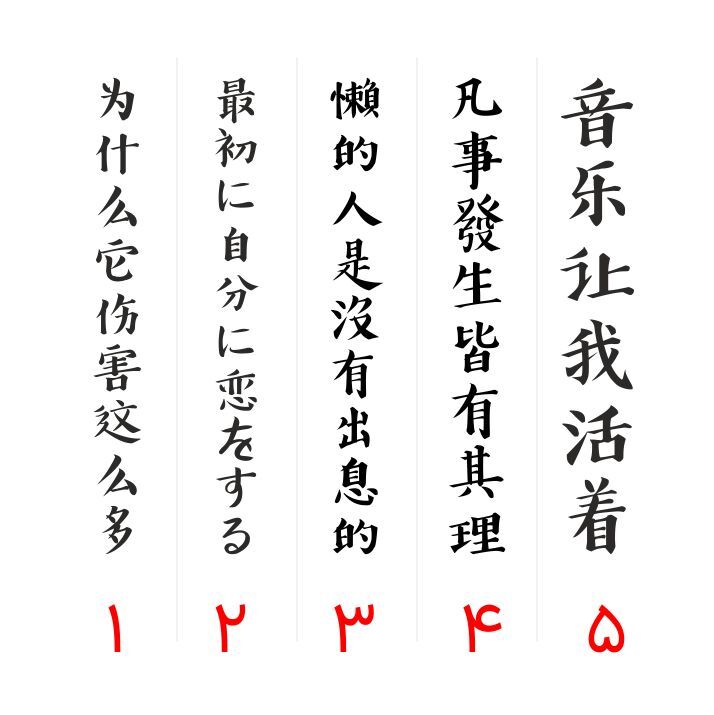 为什么它伤害这么多
最初に自分に恋をする
懶的人是沒有出息的
凡事發生皆有其理
音乐让我活着
۱
۲
۳
۴
۵